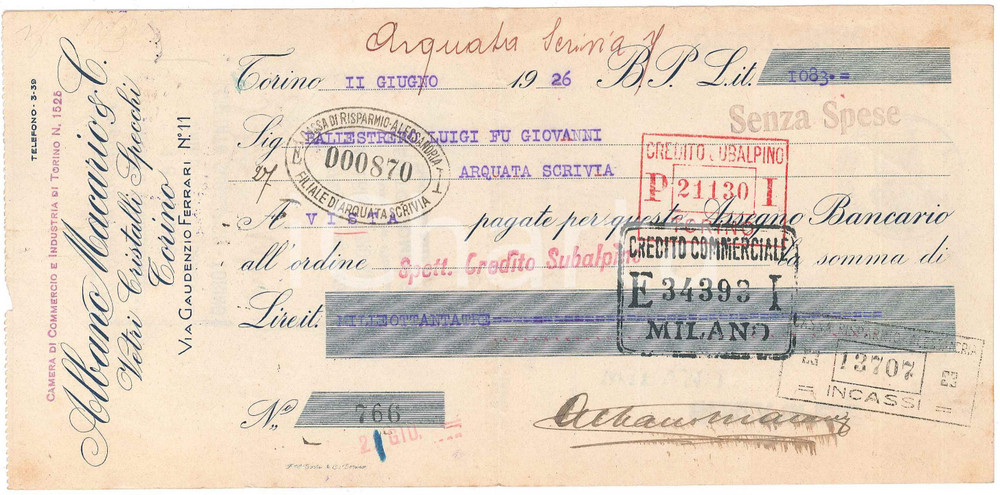 TELEFONO - 3-39
CAMERA DI COMMERCIO E INDUSTRIA DI TORINO N. 1525
Albano Macario & C.
Vetri Cristalli Specchi
Torino
VIA GAUDENZIO FERRARI N° 11
Arquata Scrivia
Torino II GIUGNO 1926 B.P. Lit. 1083.=
Senza Spese
Sig. BALLESTRERI LUIGI FU GIOVANNI
ARQUATA SCRIVIA
CASSA DI RISPARMIO-ALESSANDRIA
D00870
FILIALE D'ARQUATA SCRIVIA
CREDITO SUBALPINO
P 21130 I
TORINO
A VISTA pagate per questo Assegno Bancario
all'ordine Spett. Credito Subalpino la somma di
CREDITO COMMERCIALE
E 34393 I
MILANO
Lire it. MILLEOTTANTATRE
13707
INCASSI
N° 766
2 GIU.